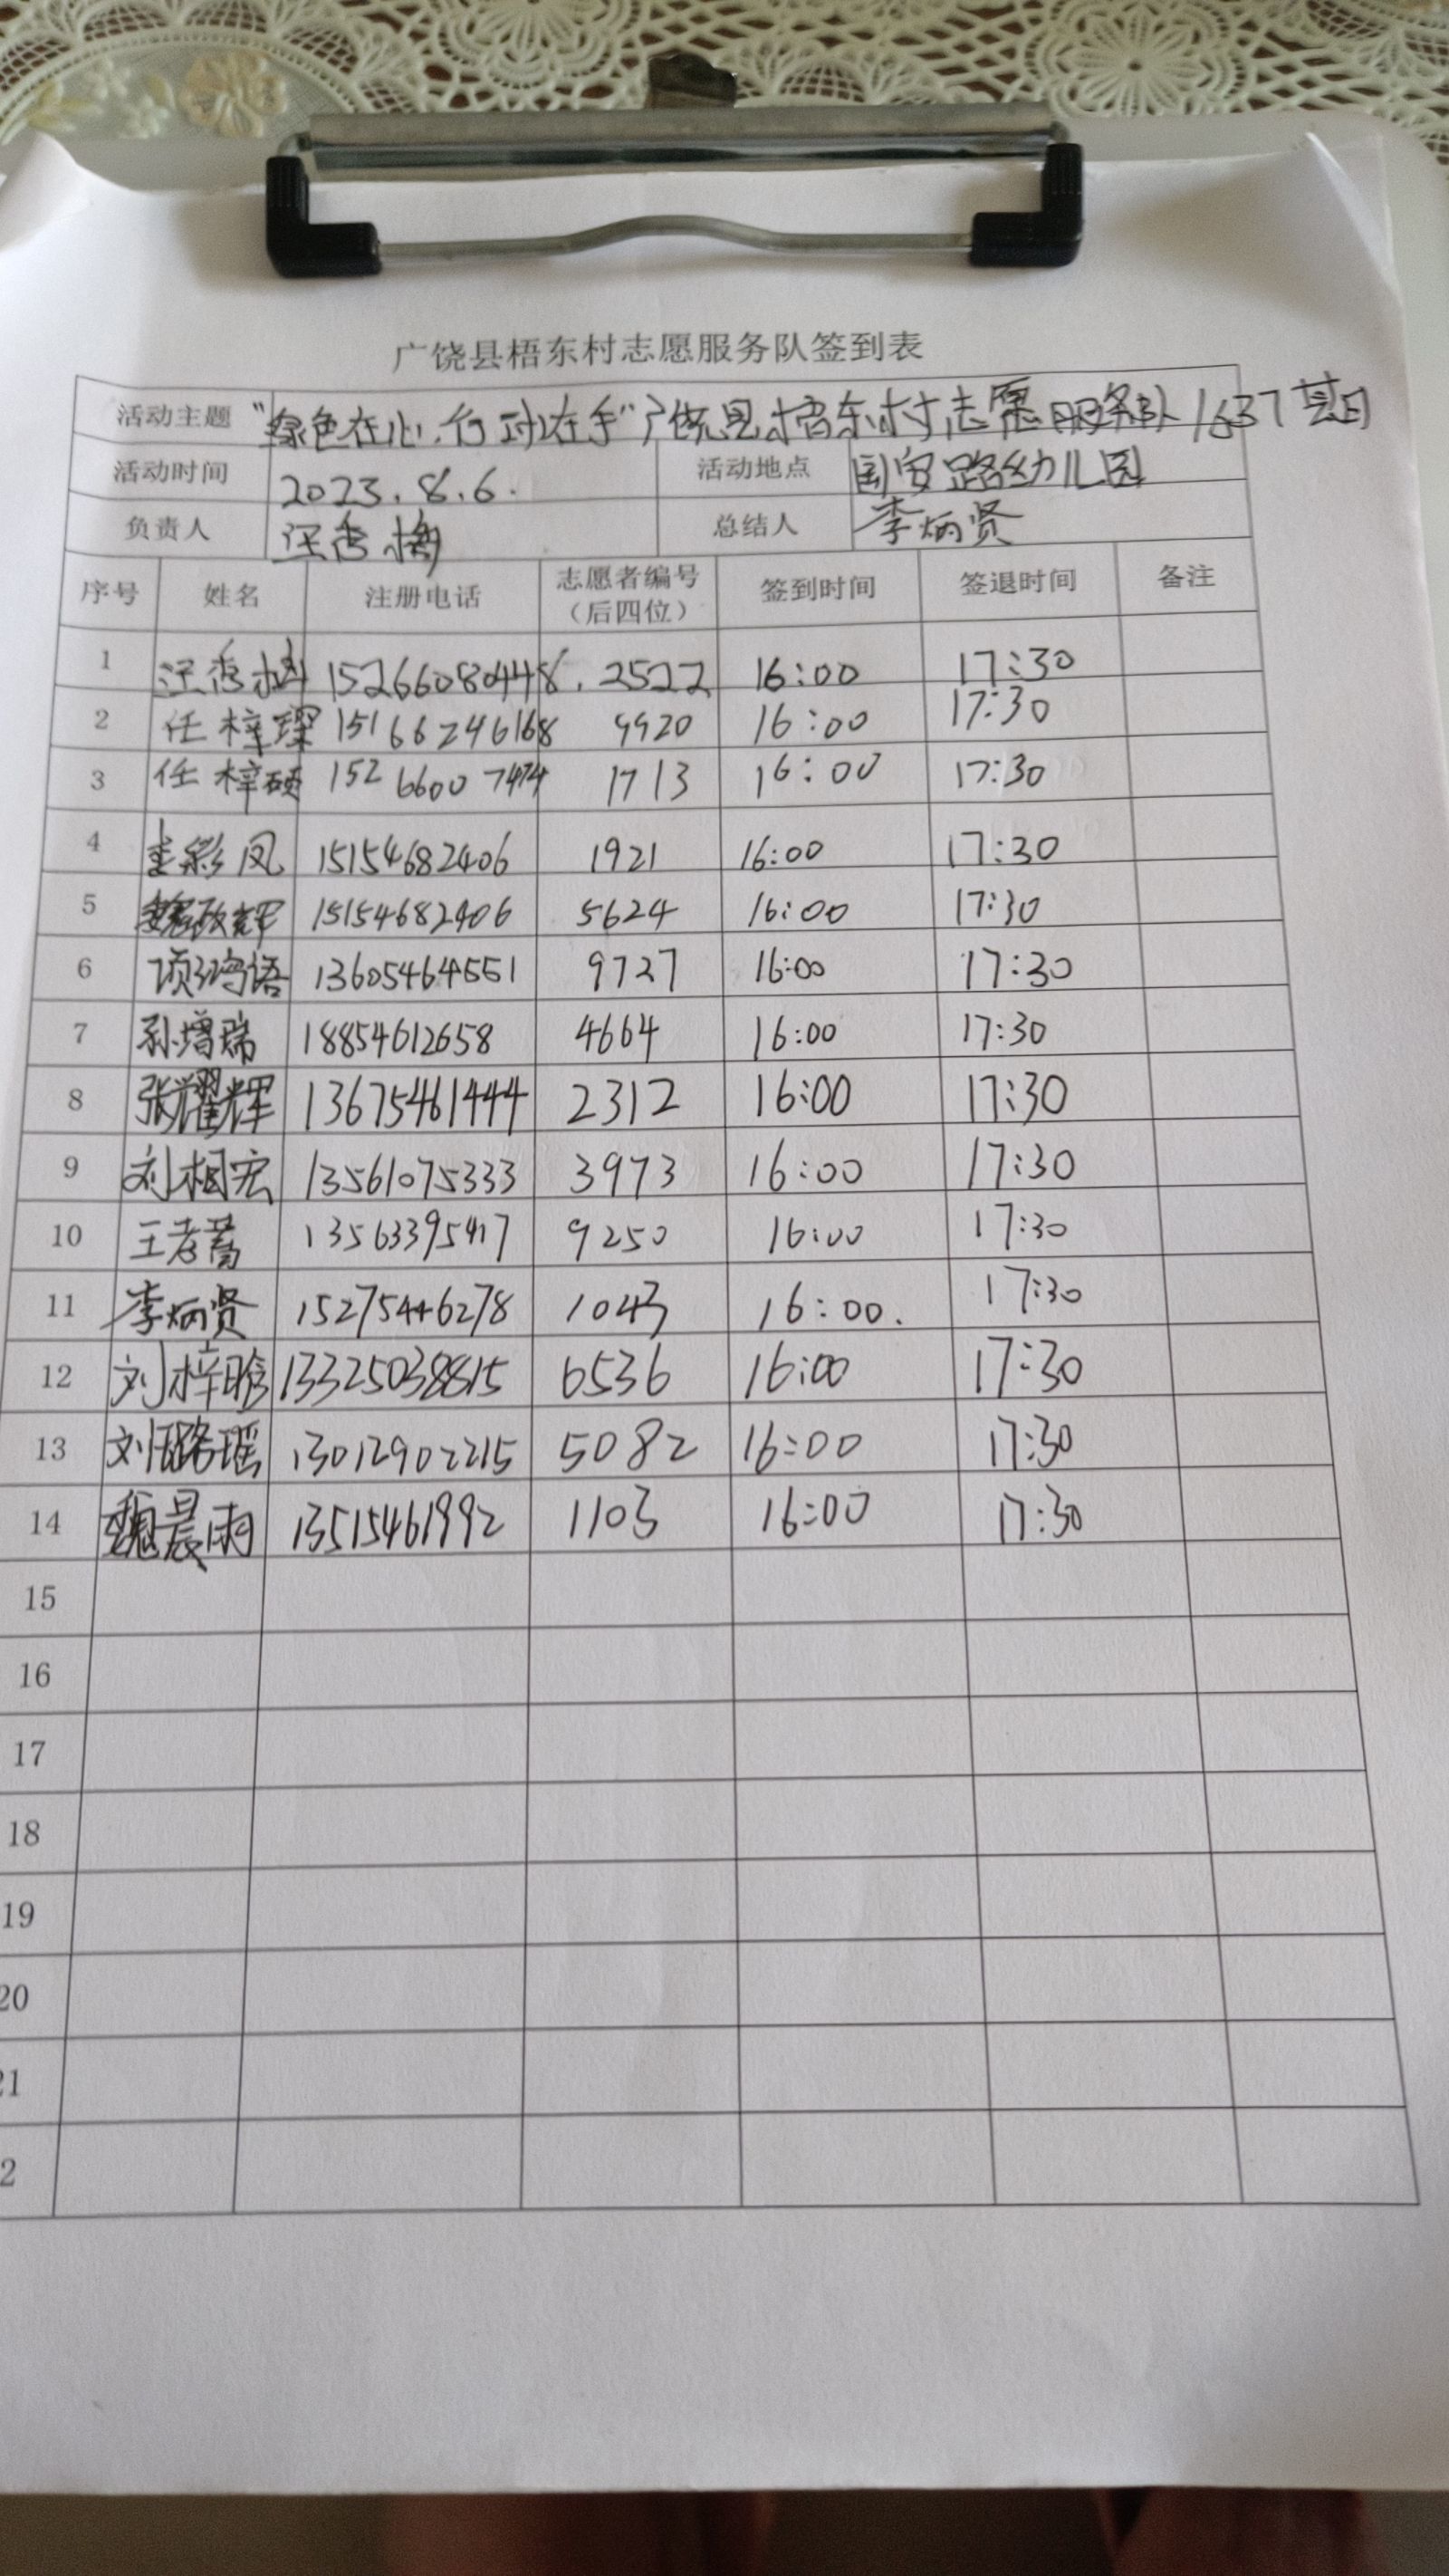 广饶县梧东村志愿服务队签到表
活动主题 "绿色在心,行动在手"广饶县梧东村志愿服务队1637期
活动时间 2023.8.6. 活动地点 国安路幼儿园
负责人 汪秀梅 总结人 李炳贤
序号 姓名 注册电话 志愿者编号(后四位) 签到时间 签退时间 备注
1 汪秀梅 15266080448. 2522 16:00 17:30
2 任梓琛 15166246168 9920 16:00 17:30
3 任梓硕 15266007474 1713 16:00 17:30
4 彩凤 15154682406 1921 16:00 17:30
5 魏政辉 15154682406 5624 16:00 17:30
6 项鸿语 13605464551 9727 16:00 17:30
7 孙增瑞 18854612658 4664 16:00 17:30
8 张耀辉 13675461444 2312 16:00 17:30
9 刘相宏 13561075333 3973 16:00 17:30
10 王孝 13563395417 9250 16:00 17:30
11 李炳贤 15275446278 1043 16:00. 17:30
12 刘梓晗 13325038815 6536 16:00 17:30
13 刘璐瑶 13012902215 5082 16:00 17:30
14 魏晨雨 13515461992 1103 16:00 17:30
15
16
17
18
19
20
21
2